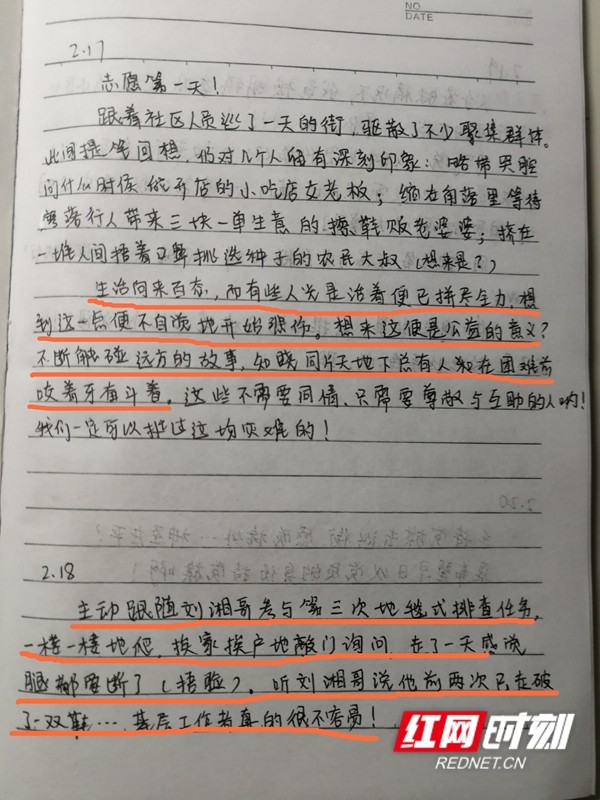 NO
DATE
2.17
志愿第一天！
跟着社区人员巡了一天的街，驱散了不少聚集群体。
此间提笔回想，仍对几个人留有深刻印象：略带哭腔
问什么时候能开店的小吃店女老板；缩在角落里等待
零落行人带来三块一单生意的擦鞋贩老婆婆；挤在
一堆人间捂着口罩挑选种子的农民大叔（想来是？）
生活向来百态，而有些人光是活着便已拼尽全力，想
到这一点便不自觉地开始。想来这便是公益的意义？
不断触碰远方的故事，知晓同片天地下总有人和在困难前
咬着牙奋斗着。这些不需要同情、只需要尊敬与互助的人呐！
我们一定可以挺过这场灾难的！
2.18
主动跟随刘湘哥参与第三次地毯式排查任务，
一楼一楼地爬，挨家挨户地敲门询问，走了一天感觉
腿都要断了（捂脸），听刘湘哥说他前两次已走破
了一双鞋…，基层工作者真的很不容易！
红网时刻
REDNET.CN